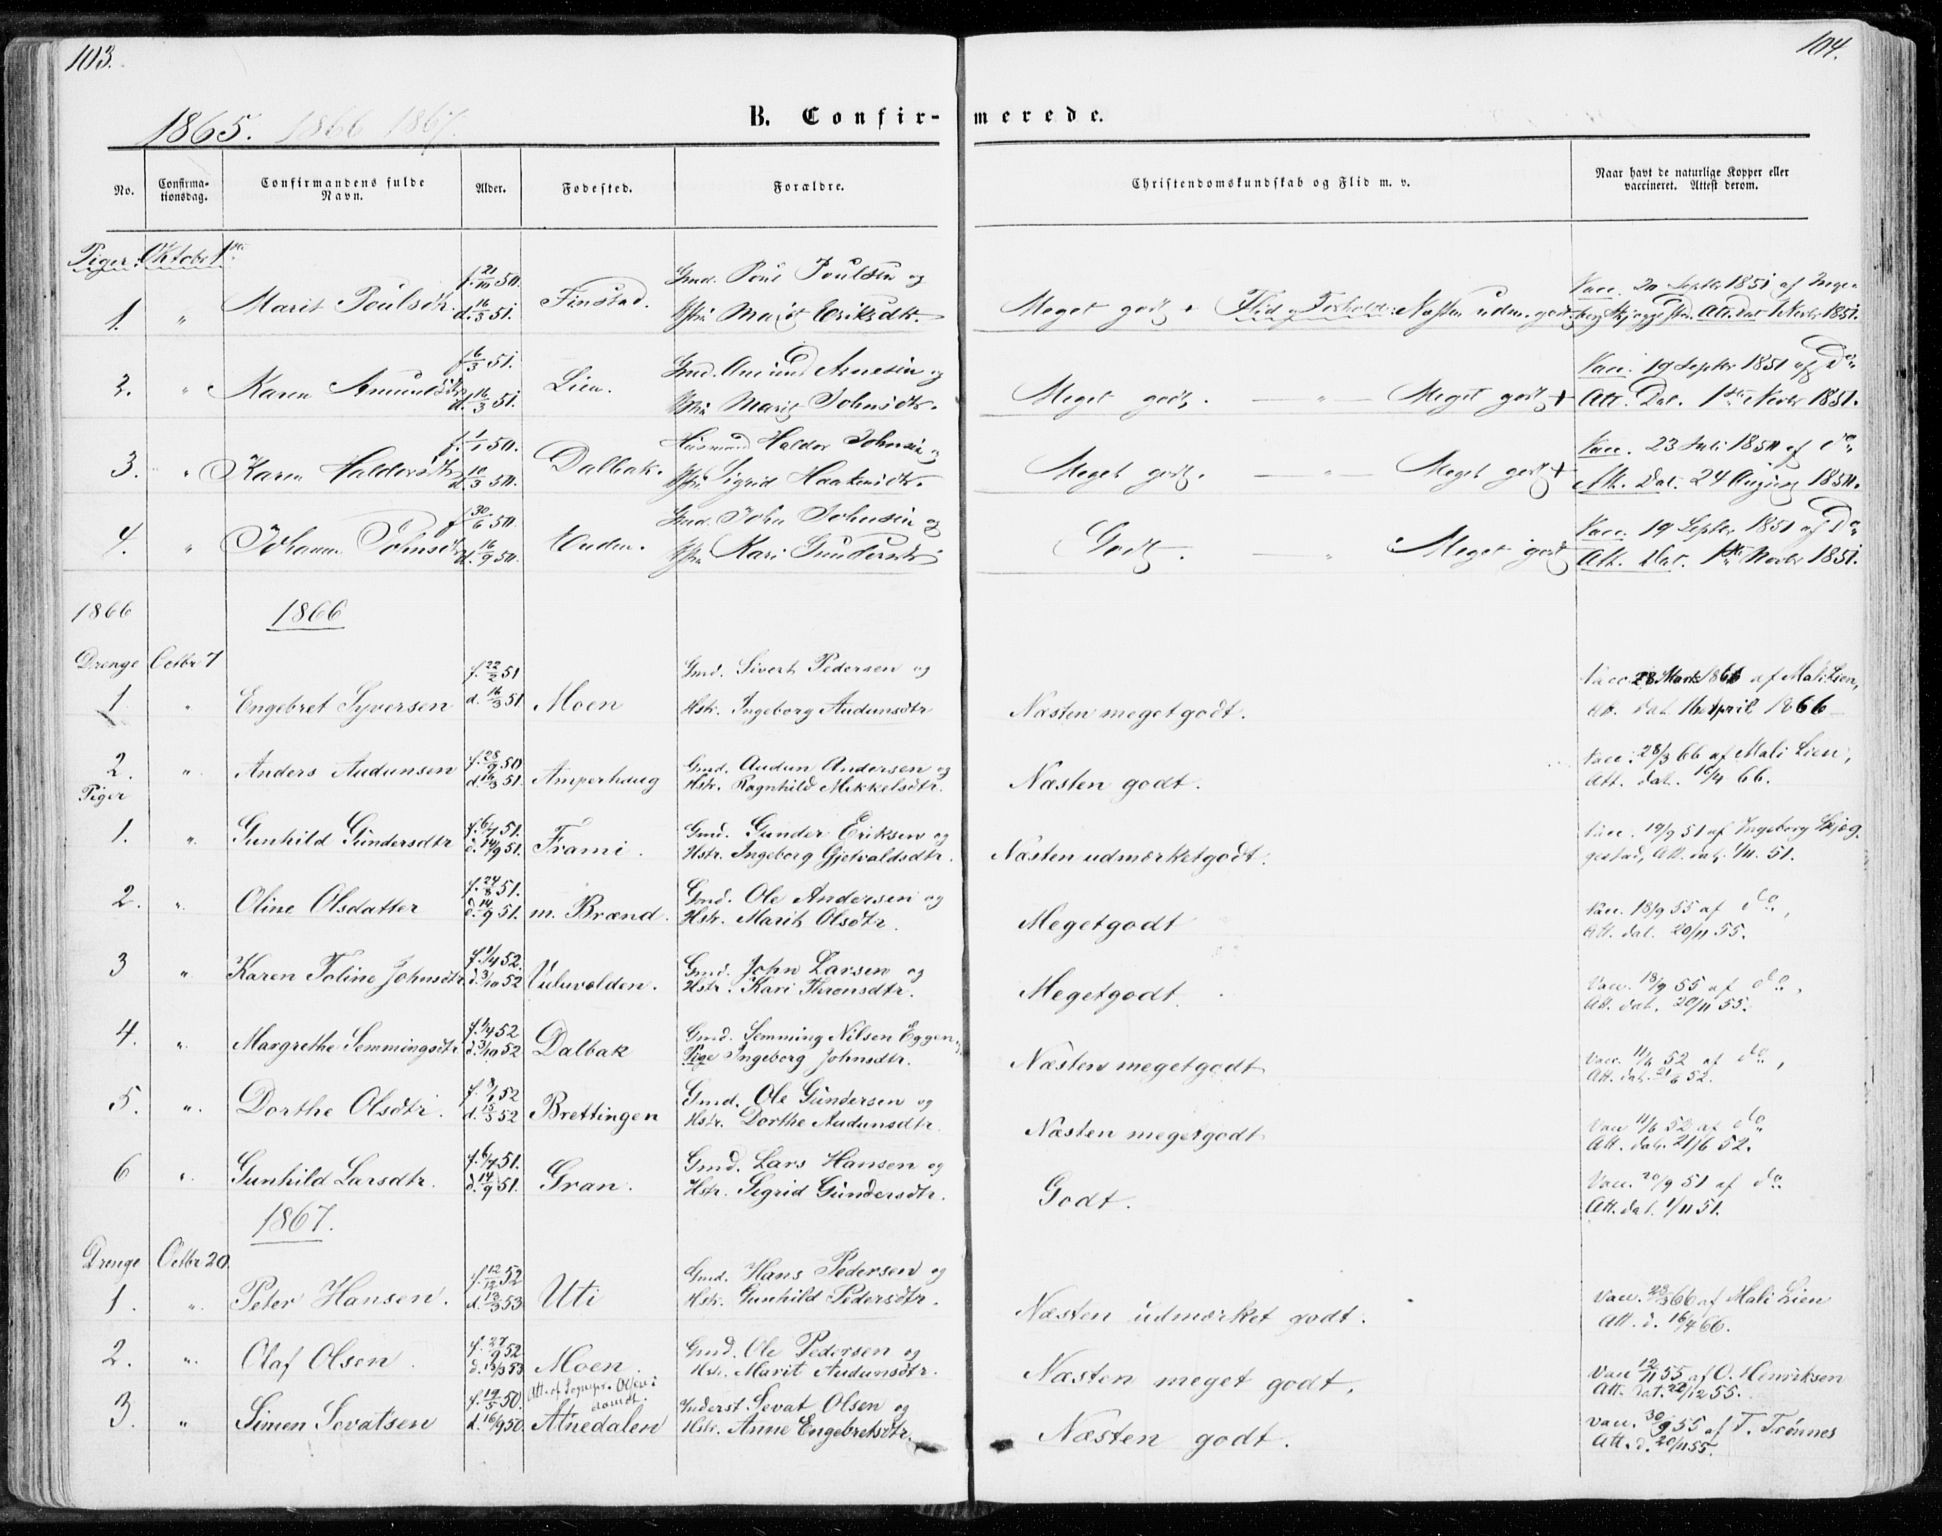 103.
104.
1865. 1866 1867.
B. Confir-
merede.
No.
Confirma-
tionsdag.
Confirmandens fulde
Navn.
Alder.
Fødested.
Forældre.
Christendomskundskab og Flid m. v.
Naar havt de naturlige Kopper eller
vaccineret. Attest derom.
Piger. Oktober 1ste
1. " Marit Poulsdtr. f. 21/10 50. d. 16/3 51. Finstad. Gmd. Poul Poulsen og
Hstr. Marit Eriksdtr. Meget godt + Flid og Forhold: Næsten udm. godt
Vacc. 20 Septbr 1851 af Inge-
borg Skjæggestad. Att. dat. 1 Novbr 1851.
2. " Karen Amundsdtr. f. 6/3 51. d. 16/3 51. Lien. Gmd. Amund Arnesen og
Hstr. Marit Johnsdtr. Meget godt. — " — Meget godt +
Vacc. 19 Septbr 1851 af Do
Att. Dat. 1ste Novbr 1851.
3. " Karen Haldorsdtr. f. 1/1 50. d. 10/3 50. Dalbak. Husmand Haldor Johnsen og
Hstr. Sigrid Haakensdtr. Meget godt. — " Meget godt +
Vacc. 23 Juli 1850 af do
Att. Dat. 24 August 1850.
4. " Johanne Johnsdtr. f. 30/6 50. d. 16/9 50. Gmd. John Johnsen og
Hstr. Kari Gundersdtr. Godt. — " Meget godt
Vacc. 19 Septbr 1851 af Do
Att. Dat. 1ste Novbr 1851.
1866 1866
Drenge Octbr 7
1 " Engebret Syversen f. 22/2 51 d. 16/3 51 Moen Gmd. Sivert Pedersen og
Hstr. Ingeborg Audunsdtr Næsten megetgodt.
Vacc. 28 Marts 1866 af Mali Lien,
Att. dat. 16 April 1866
2. " Anders Audunsen f. 28/9 50 d. 16/3 51. Amperhaug Gmd. Audun Andersen og
Hstr. Ragnhild Mikkelsdtr. Næsten godt.
Vacc. 28/3 66 af Mali Lien,
Att. dat. 16/4 66.
Piger
1. " Gunhild Gundersdtr f. 6/7 51. d. 14/9 51. Frami. Gmd. Gunder Eriksen og
Hstr. Ingeborg Gjetvaldsdtr. Næsten udmærketgodt.
Vacc. 19/9 51 af Ingeborg Skjæg-
gestad, Att. dat. 1/11. 51.
2. " Oline Olsdatter f. 24/8 51. d. 14/9 51. m. Brænd. Gmd. Ole Andersen og
Hstr. Marit Olsdtr. Megetgodt
Vacc. 18/9 55 af do,
Att. dat. 20/11 55.
3 " Karen Toline Johnsdtr. f. 1/4 52. d. 3/10 52 Gmd. John Larsen og
Hstr. Kari Thronsdtr. Megetgodt.
Vacc. 18/9 55 af do,
Att. dat. 20/11 55.
4. " Margrethe Semmingsdtr f. 1/4 52 d. 3/10 52 Dalbak Gmd. Semming Nilsen Eggen
Pige Ingeborg Johnsdtr. Næsten megetgodt
Vacc. 11/6 52 af do,
Att. dat. 21/6 52.
5. " Dorthe Olsdtr. d. 15/3 52 Brettingen Gmd. Ole Gundersen og
Hstr. Dorthe Audunsdtr. Næsten megetgodt
Vacc 11/6 52 af do
Att. dat. 21/6 52.
6 " Gunhild Larsdtr. f. 6/7 51. d. 14/9 51. Gran. Gmd. Lars Hansen og
Hstr. Sigrid Gundersdtr. Godt.
Vacc. 20/9 51 af do
Att. dat. 1/11 51.
1867.
Drenge Octbr 20.
1. " Peter Hansen. f. 12/12 52 d. 13/3 53 Uti Gmd. Hans Pedersen og
Hstr. Gunhild Pedersdtr. Næsten udmærket godt.
Vacc. 28/3 66 af Mali Lien
Att. d. 16/4 66.
2. " Olaf Olsen. f. 27/9 52 d. 13/3 53 Moen. Gmd. Ole Pedersen og
Hstr. Marit Audunsdtr. Næsten meget godt.
Vacc 12/11 55 af O. Henriksen
Att. dat. 22/12 55.
3. " Simen Sevatsen f. 19/5 50. d. 16/9 50. Att. af Sognepr. Olsen:
Atnedalen Inderst Sevat Olsen og
Hstr. Anne Engebretsdtr. Næsten godt.
Vacc. 30/9 55 af T. Trønnes
Att. d. 20/11 55.